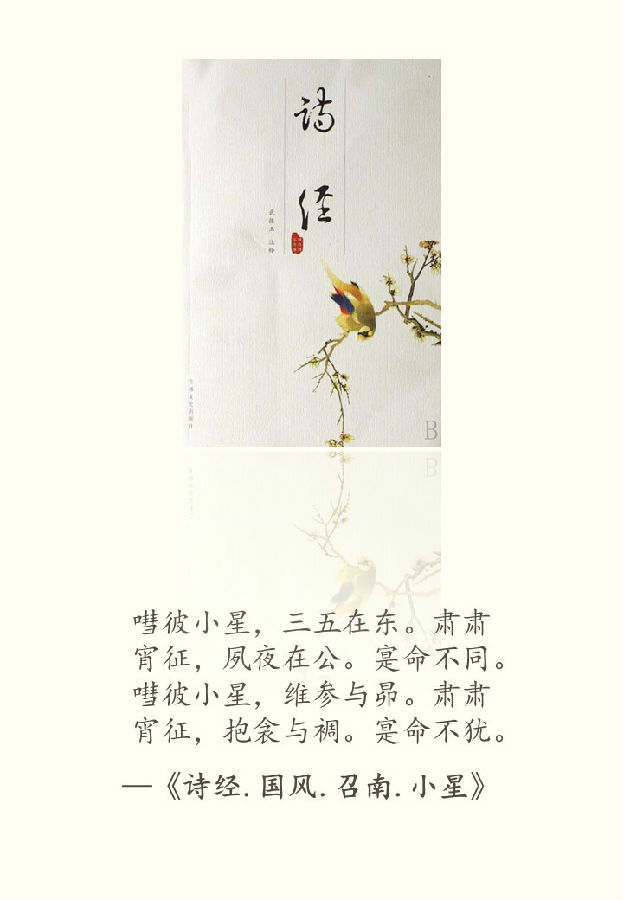 诗
经
B
嘒彼小星，三五在东。肃肃
宵征，夙夜在公。寔命不同。
嘒彼小星，维参与昴。肃肃
宵征，抱衾与裯。寔命不犹。
—《诗经.国风.召南.小星》